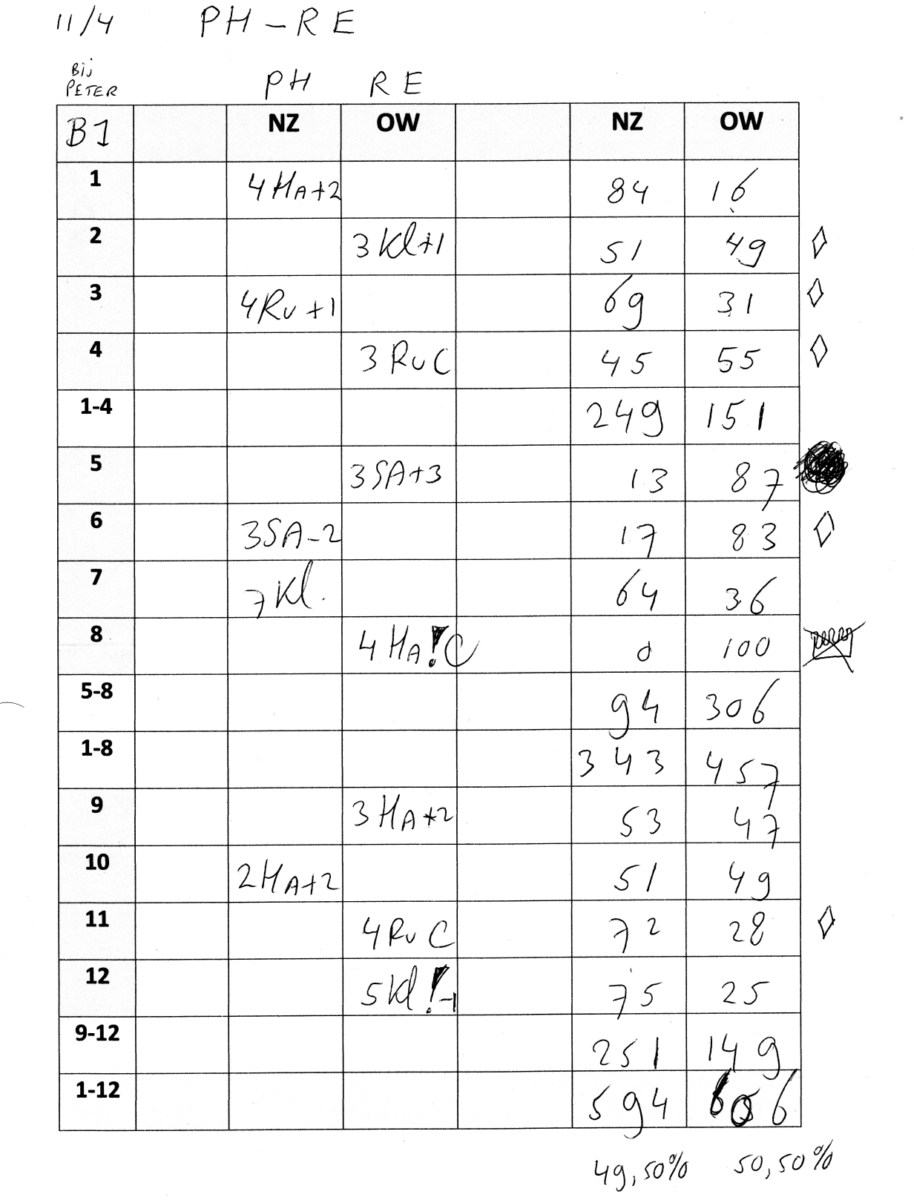 11/4 PH-RE
Bij
PETER PH RE
B1 NZ OW NZ OW
1 4HA+2 84 16
2 3Kl+1 51 49
3 4RU+1 69 31
4 3RUC 45 55
1-4 249 151
5 3SA+3 13 87
6 3SA-2 17 83
7 7Kl. 64 36
8 4HA!C 0 100
5-8 94 306
1-8 343 457
9 3HA+2 53 47
10 2HA+2 51 49
11 4RUC 72 28
12 5Kl!-1 75 25
9-12 251 149
1-12 594 606
49,50% 50,50%